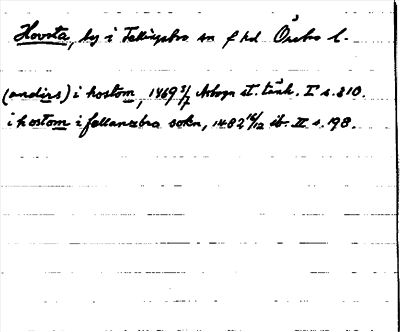 Hovsta, by i Fellingsbro sn f hd Örebro l.
(andirs) i hostom, 1469 3/7 Arboga st. tänk. I s. 310.
i hostom i fellanzbra sokn, 1482 16/12 ib. II s. 198.